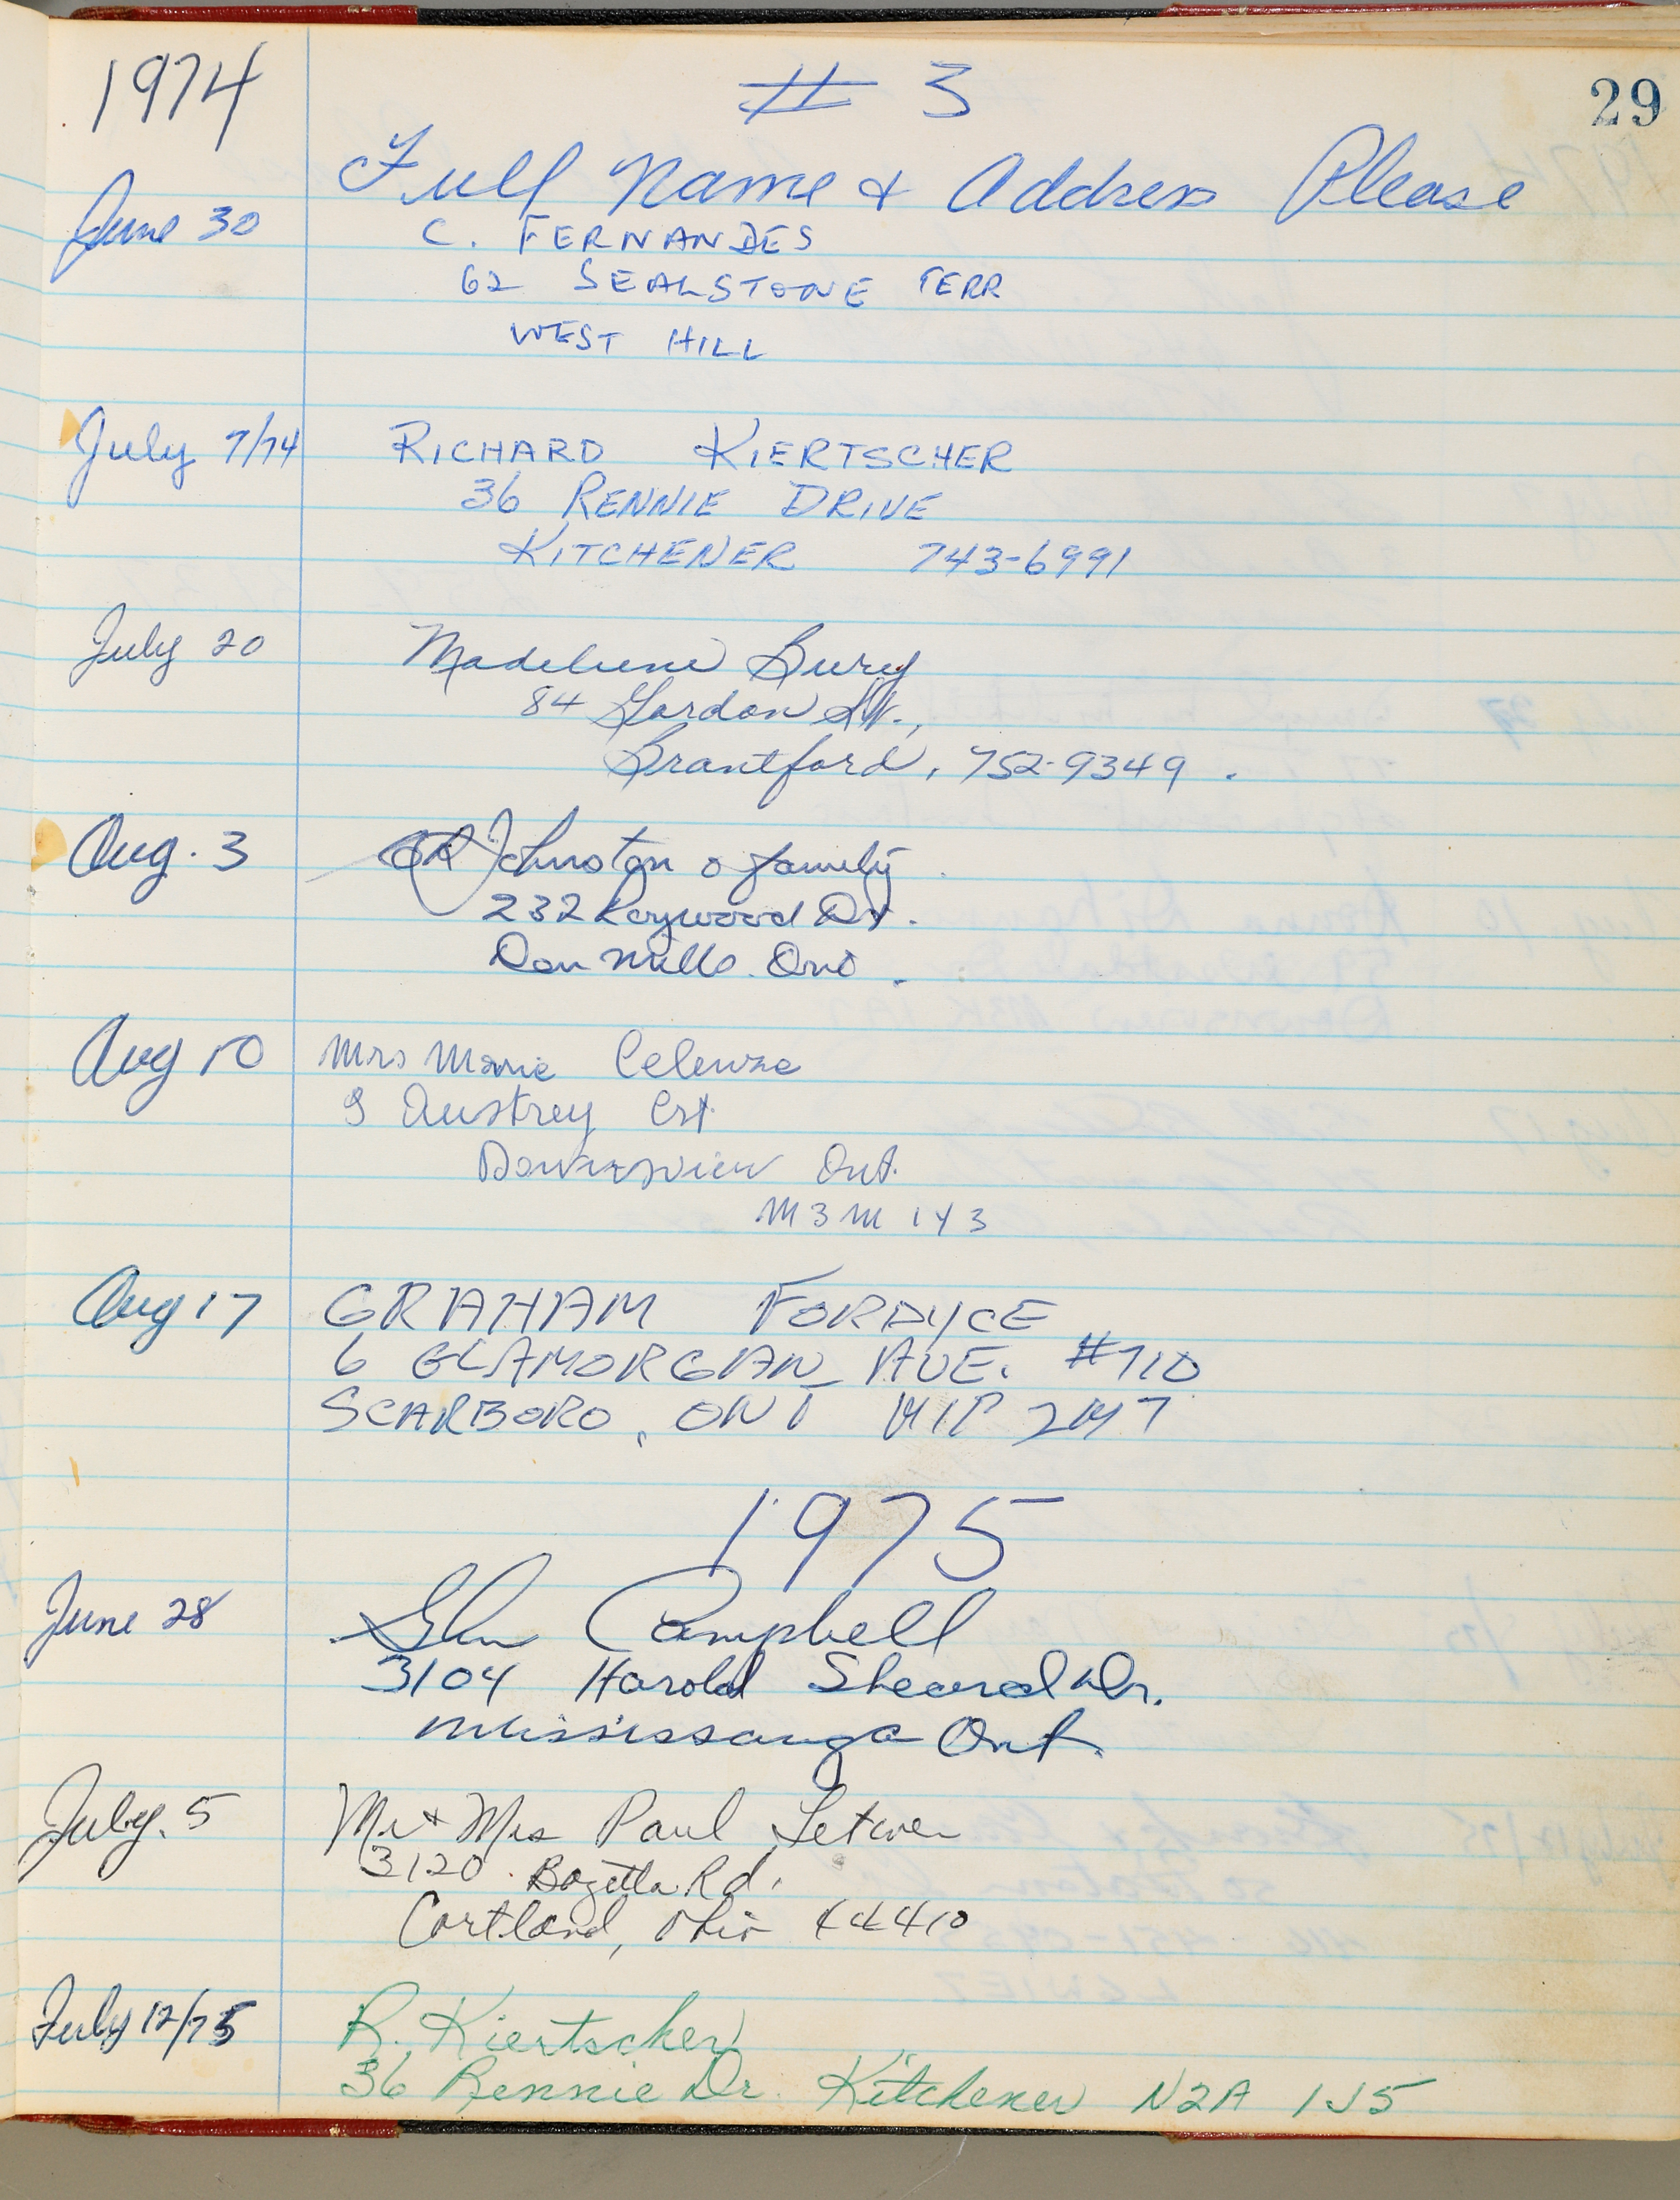 1974 # 3 29
Full Name & Address Please
June 30 C. FERNANDES
62 SEALSTONE TERR
WEST HILL
July 7/74 RICHARD KIERTSCHER
36 RENNIE DRIVE
KITCHENER 743-6991
July 20 Madeleine Bury
84 Gordon St.,
Brantford, 752-9349.
Aug. 3 Johnston & family
232 Roywood Dr.
Don Mills. Ont.
Aug 10 Mrs Marie Celenza
9 Austrey Crt.
Downsview Ont.
M3M 1Y3
Aug 17 GRAHAM FORDYCE
6 GLAMORGAN AVE. #710
SCARBORO, ONT M1P 2M7
1975
June 28 Glen Campbell
3104 Harold Sheard Dr.
Mississauga Ont.
July. 5 Mr & Mrs Paul
3120 Bazetta Rd.
Cortland, Ohio 44410
July 12/75 R. Kiertscher
36 Rennie Dr. Kitchener N2A 1J5